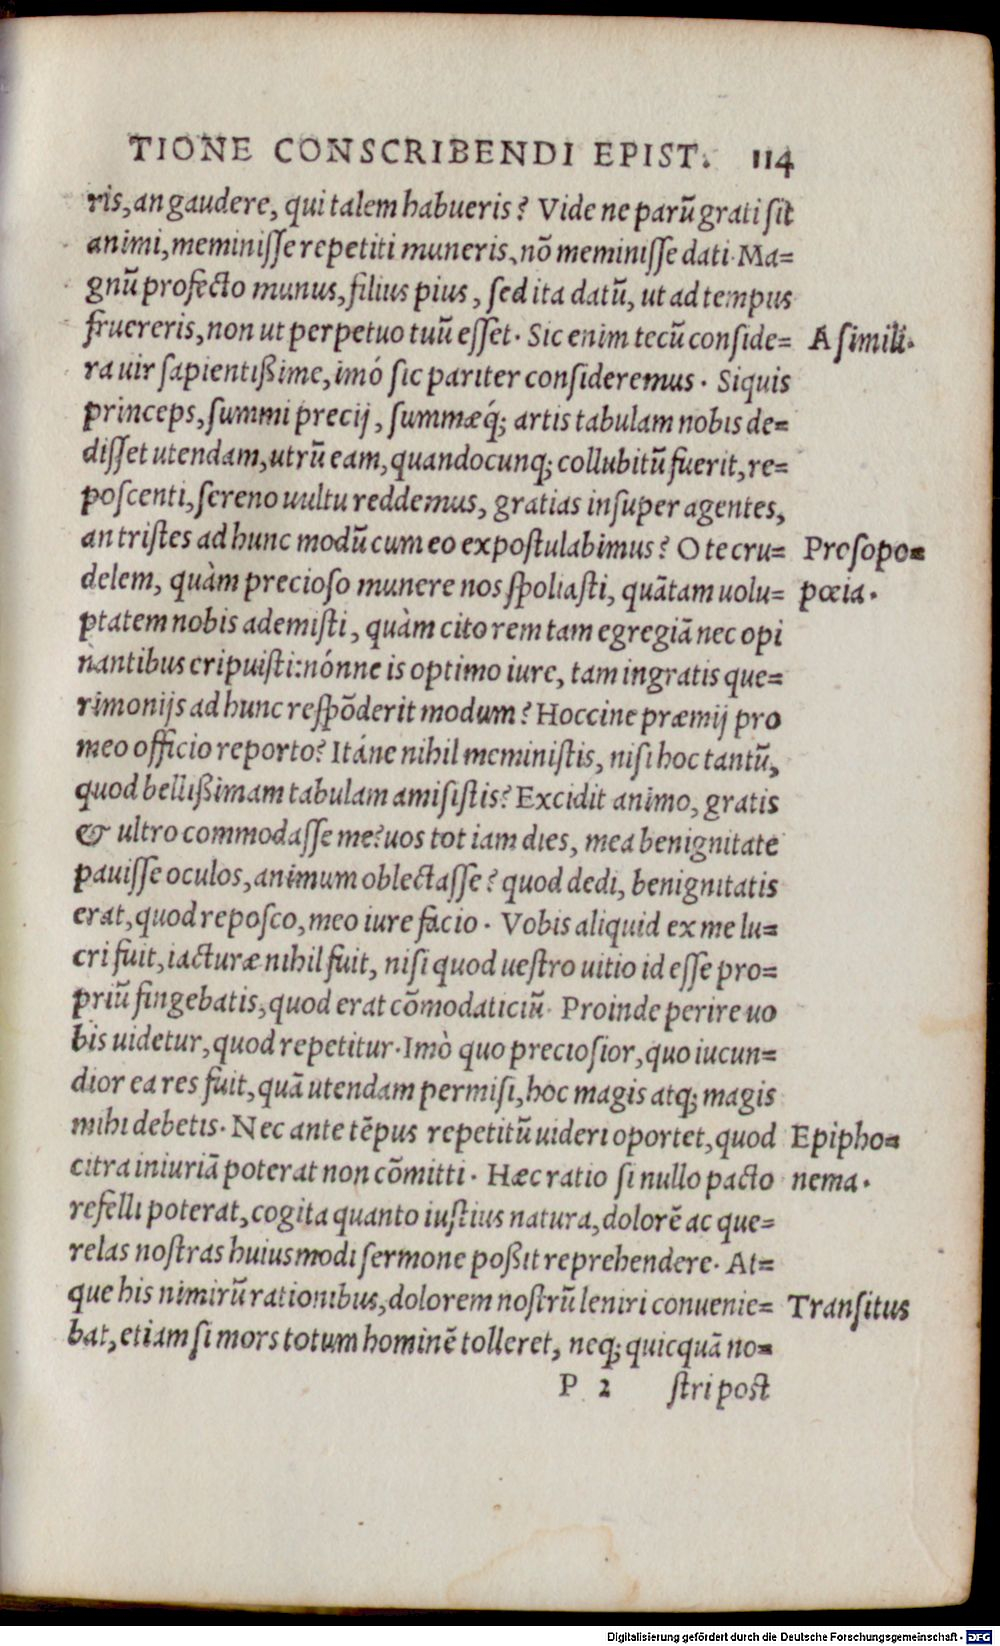 TIONE CONSCRIBENDI EPIST. 114
ris, an gaudere, qui talem habueris? Vide ne parū grati sit
animi, meminisse repetiti muneris, nō meminisse dati. Ma=
gnū profecto munus, filius pius, sed ita datū, ut ad tempus
fruereris, non ut perpetuo tuū esset. Sic enim tecū conside= A simili.
ra uir sapientißime, imó sic pariter consideremus. Siquis
princeps, summi precij, summæq́; artis tabulam nobis de=
disset utendam, utrū eam, quandocunq; collubitū fuerit, re=
poscenti, sereno uultu reddemus, gratias insuper agentes,
an tristes ad hunc modū cum eo expostulabimus? O te cru= Prosopo=
delem, quàm precioso munere nos spoliasti, quātam uolu= pœia.
ptatem nobis ademisti, quàm cito rem tam egregiā nec opi
nantibus eripuisti: nónne is optimo iure, tam ingratis que=
rimonijs ad hunc respōderit modum? Hoccine præmij pro
meo officio reporto? Itáne nihil meministis, nisi hoc tantū,
quod bellißimam tabulam amisistis? Excidit animo, gratis
& ultro commodasse me? uos tot iam dies, mea benignitate
pauisse oculos, animum oblectasse? quod dedi, benignitatis
erat, quod reposco, meo iure facio. Vobis aliquid ex me lu=
cri fuit, iacturæ nihil fuit, nisi quod uestro uitio id esse pro=
priū fingebatis, quod erat cōmodaticiū. Proinde perire uo
bis uidetur, quod repetitur. Imò quo preciosior, quo iucun=
dior ea res fuit, quā utendam permisi, hoc magis atq; magis
mihi debetis. Nec ante tēpus repetitū uideri oportet, quod Epipho=
citra iniuriā poterat non cōmitti. Hæc ratio si nullo pacto nema.
refelli poterat, cogita quanto iustius natura, dolorē ac que=
relas nostras huiusmodi sermone poßit reprehendere. At=
que his nimirū rationibus, dolorem nostrū leniri conuenie= Transitus
bat, etiam si mors totum hominē tolleret, neq; quicquā no=
P 2 stri post
Digitalisierung gefördert durch die Deutsche Forschungsgemeinschaft - DFG